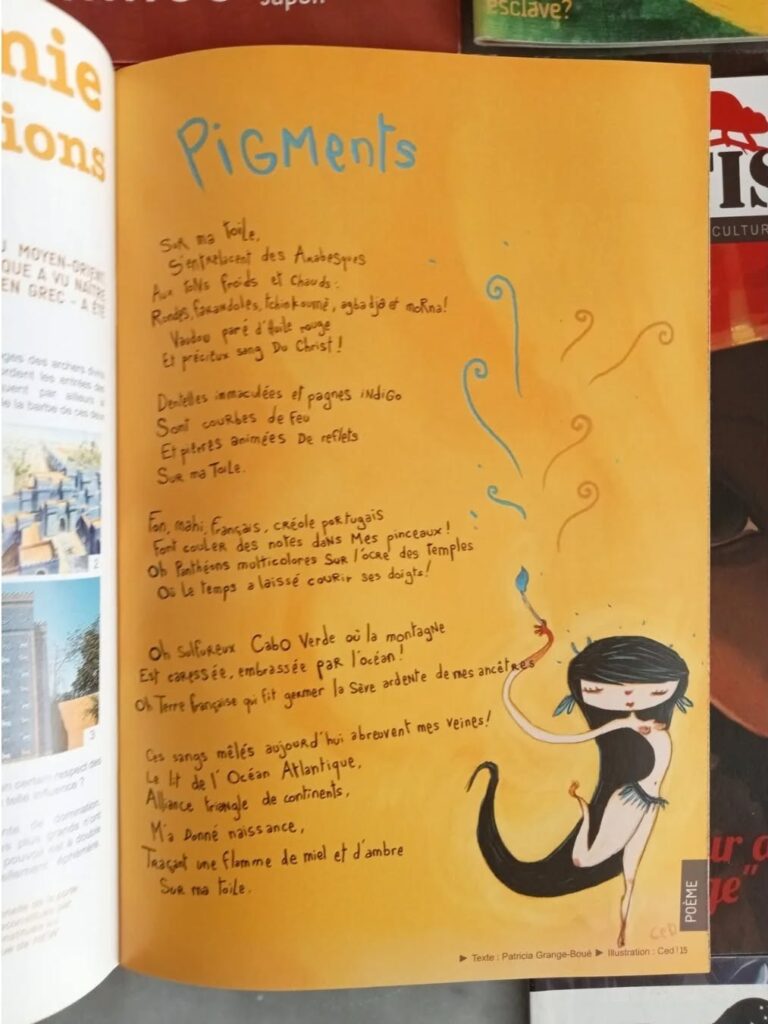 Japon
esclave?
nie
ions
MOYEN-ORIENT,
QUE A VU NAÎTRE
EN GREC - A ÉTÉ
2
3
un certain respect des
telle influence ?
PiGMents
Sur ma toile,
S'entrelacent des Arabesques
Aux tons froids et chauds:
Rondes, farandoles, tchinkoumé, agbadja et morna!
Vaudou paré d'huile rouge
Et précieux sang Du Christ!
Dentelles immaculées et pagnes indigo
Sont courbes de feu
Et pierres animées De reflets
Sur ma Toile.
Fon, mahi, français, créole portugais
Font couler des notes dans Mes pinceaux!
Oh Panthéons multicolores Sur l'ocre des Temples
Où le Temps a laissé courir ses doigts!
Oh sulfureux Cabo Verde où la montagne
Est caressée, embrassée par l'océan!
Oh Terre française qui fit germer la Sève ardente de mes ancêtres
Ces sangs mêlés aujourd'hui abreuvent mes veines!
Le lit de l'Océan Atlantique,
Alliance triangle de continents,
M'a Donné naissance,
Traçant une flamme de miel et d'ambre
Sur ma toile.
CeD
POÈME
► Texte : Patricia Grange-Boué ► Illustration : Ced / 15
TIS
CULTUR
ur
ge"